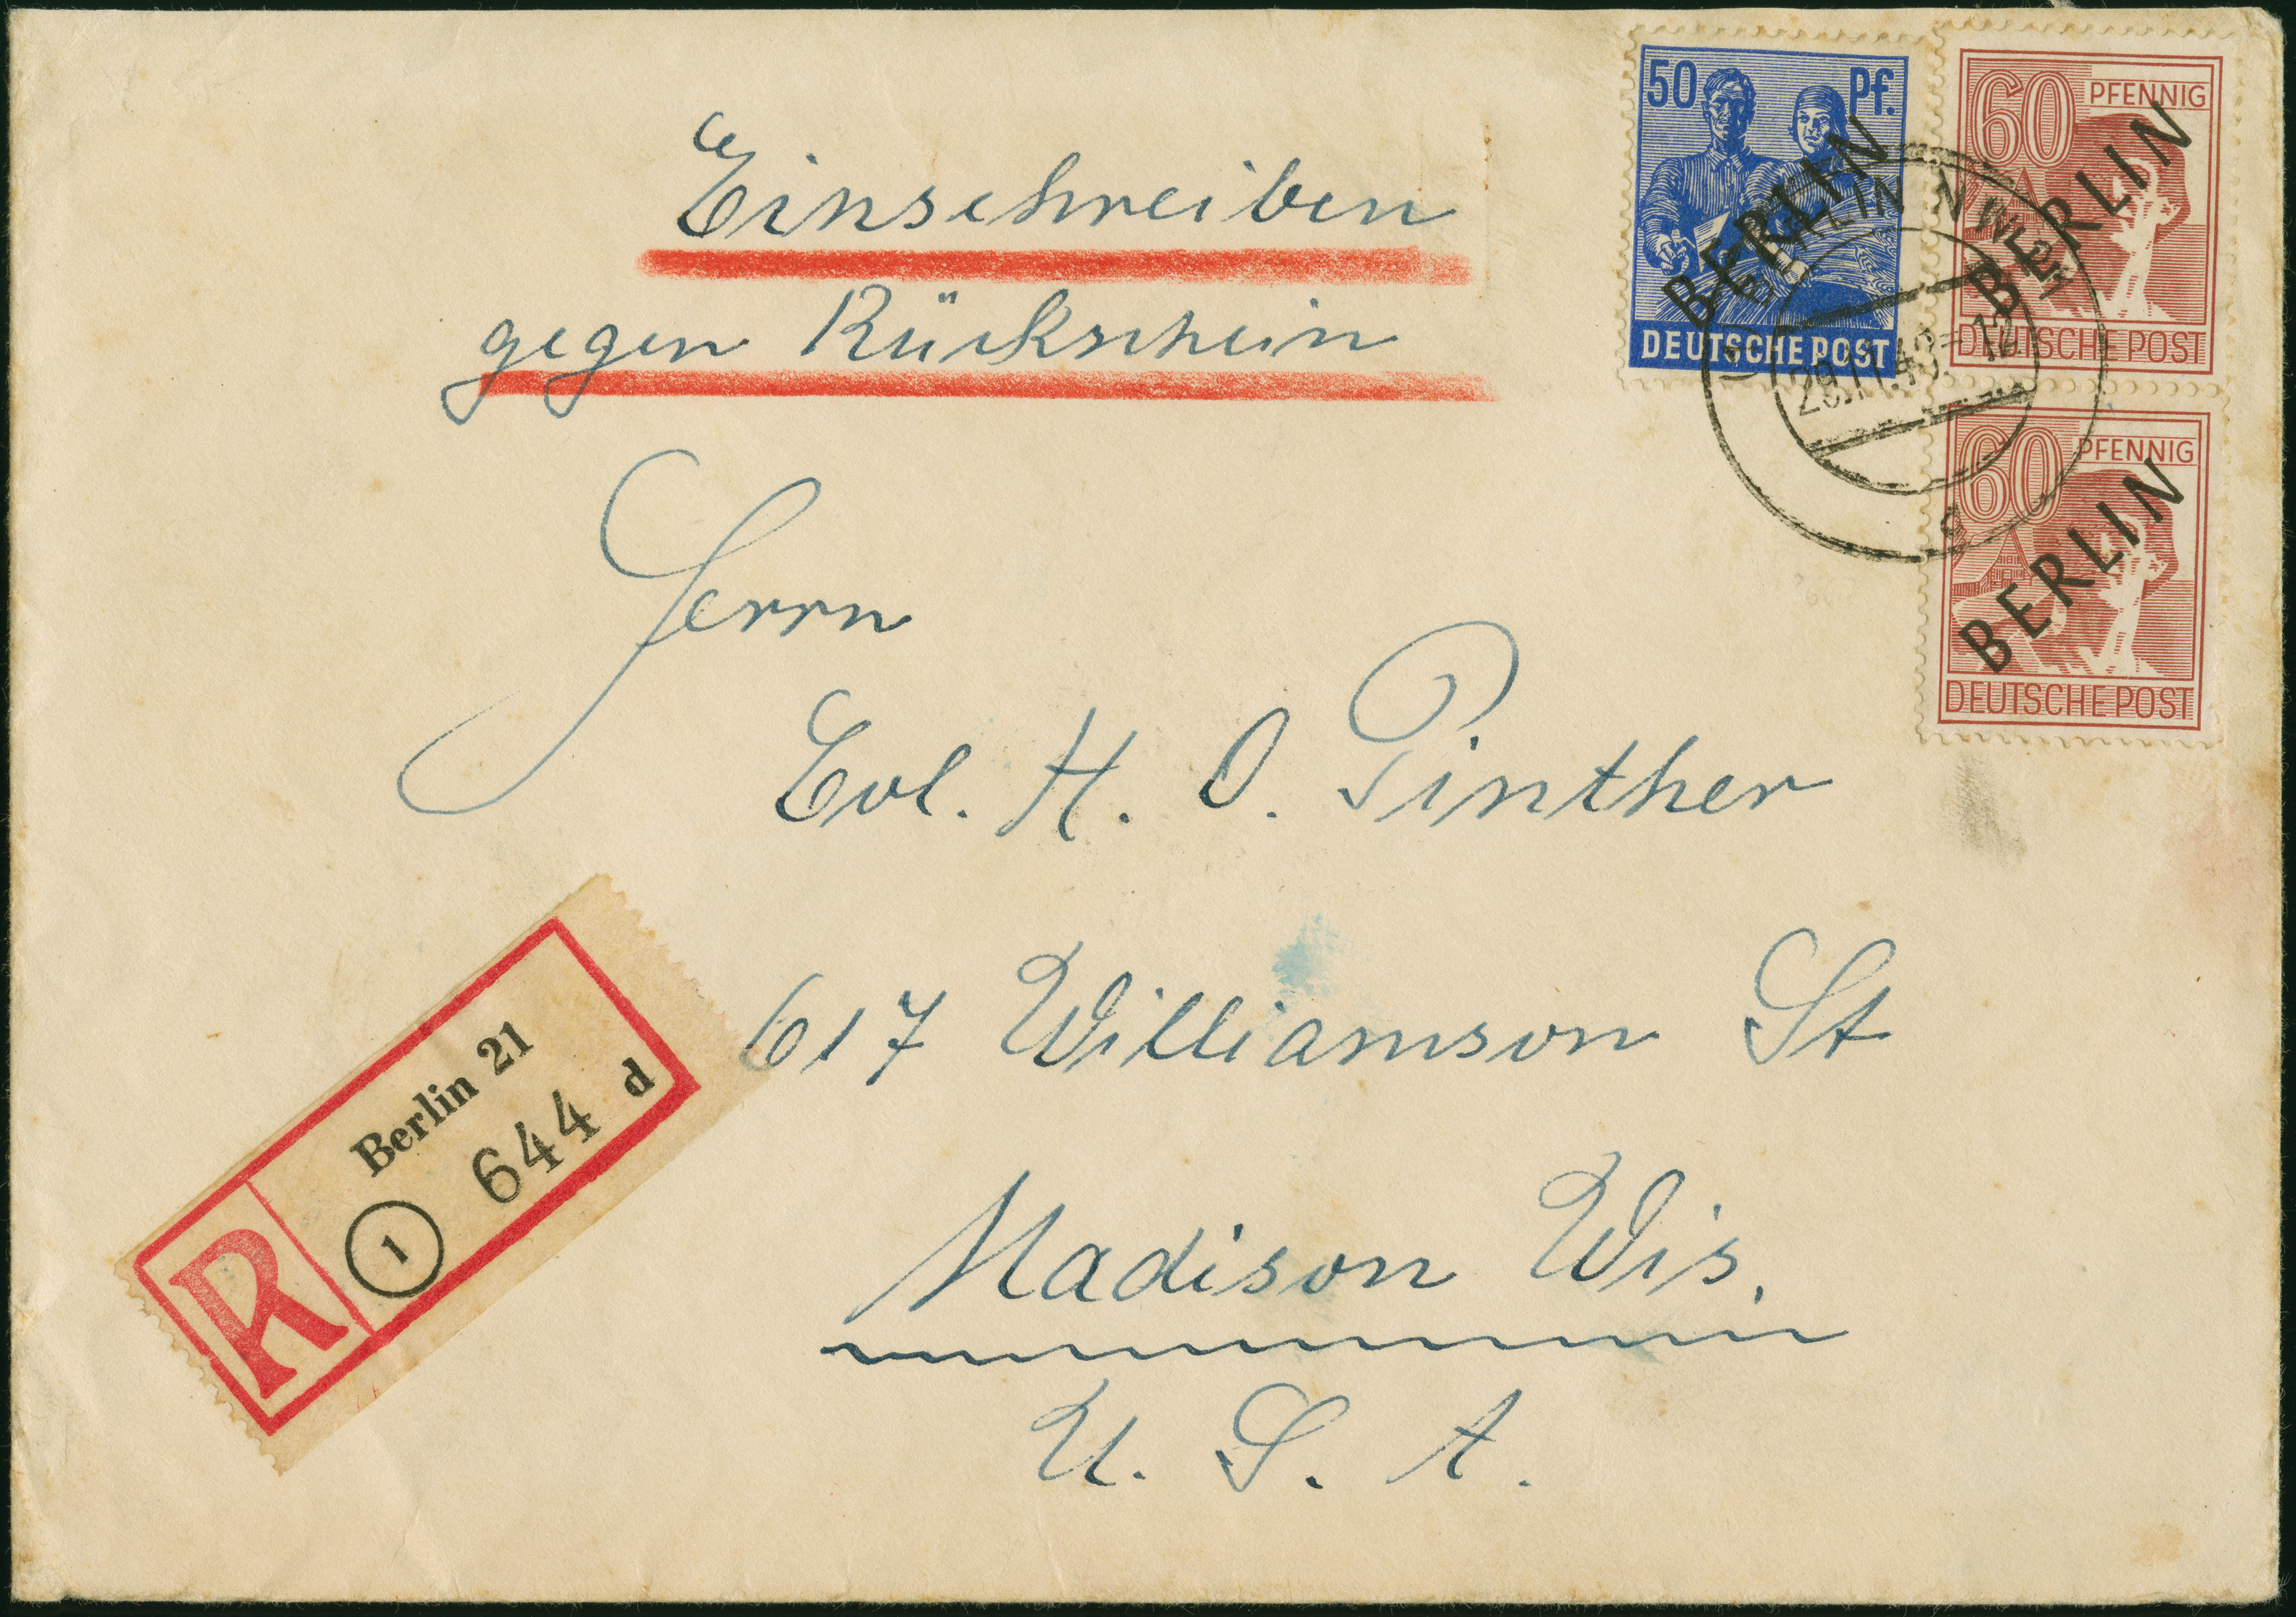 Einschreiben
gegen Rückschein
50 Pf.
BERLIN
DEUTSCHE POST
60 PFENNIG
BERLIN
DEUTSCHE POST
60 PFENNIG
BERLIN
DEUTSCHE POST
BERLIN NW
Herrn
Evl. H. O. Pinther
617 Williamson St
Madison Wis.
U. S. A.
Berlin 21
1 644 d
R